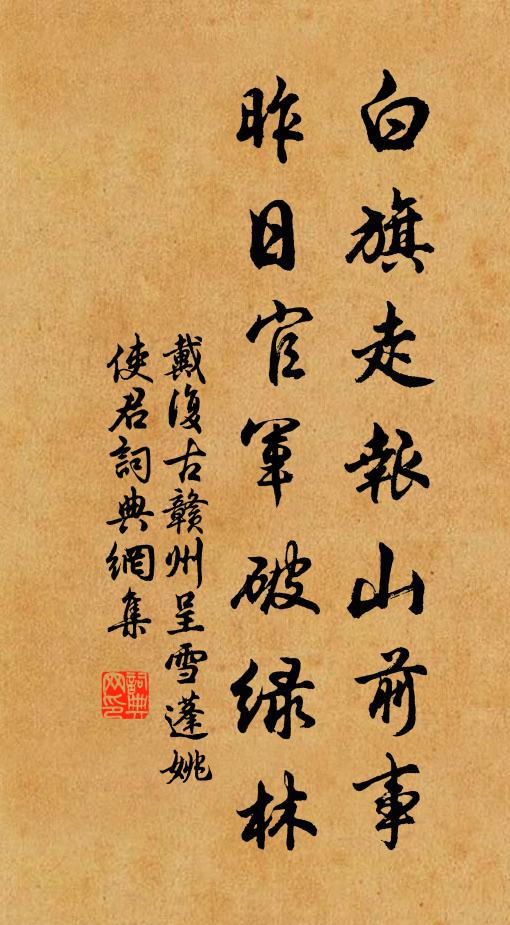 白旗走報山前事
昨日官軍破緑林
戴復古贛州呈雪蓬姚
使君詞典網集
詞典
网印